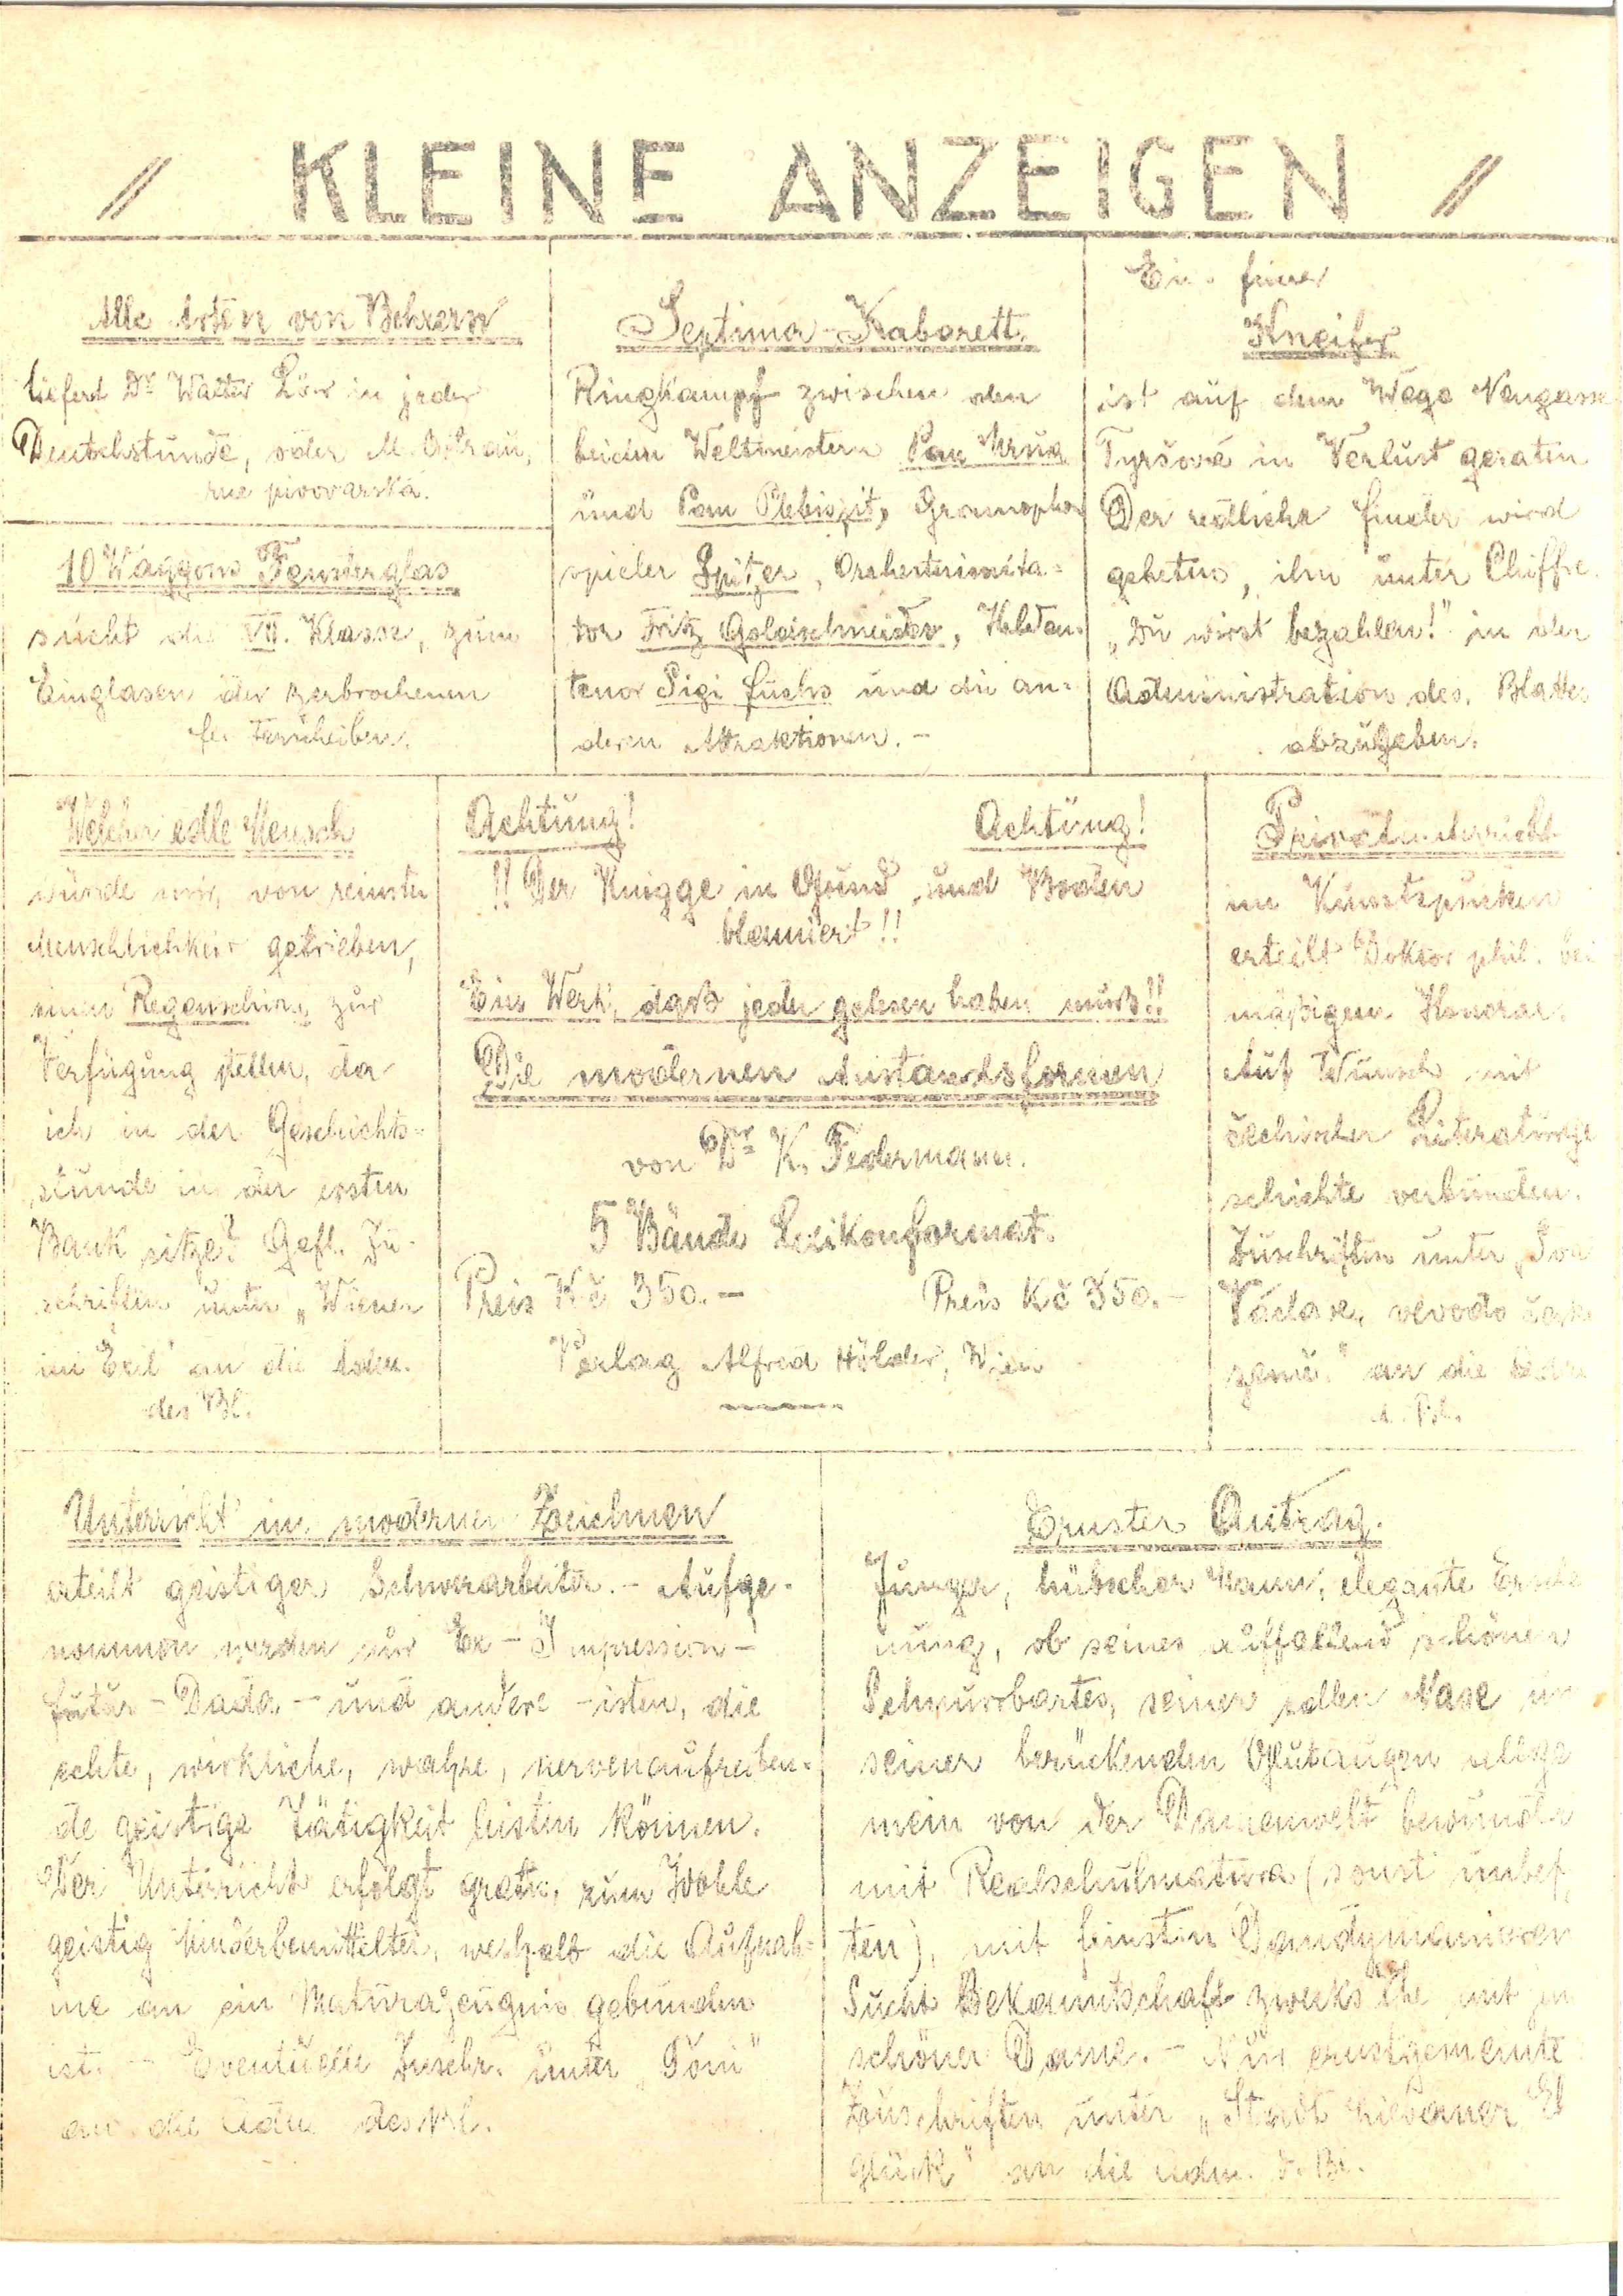 // KLEINE ANZEIGEN //
Alle Arten von Bohrern
liefert Dr Walter Löw in jeder
Deutschstunde, oder M. Ostrau,
rue pivovarská.
10 Waggons Fensterglas
sucht die VII. Klasse, zum
Einglasen der zerbrochenen
Septima-Kabarett.
Ringkampf zwischen den
beiden Weltmeistern Pan
und Pan Plebiszit, Grammophon
spieler Spitzer, Orchesterimita=
tor Fritz Goldschmieder, Helden
tenor Sigi Fuchs und die an=
deren Attraktionen. -
Ein feiner
Kneifer
ist auf dem Wege Neugasse
Tyršova in Verlust geraten
Der redliche Finder wird
gebeten, ihn unter Chiffre
„Du wirst bezahlen!" in der
Administration des Blattes
abzugeben.
Welcher edle Mensch
würde mir, von reinster
Menschlichkeit getrieben,
einen Regenschirm zur
Verfügung stellen, da
ich in der Geschichts-
stunde in der ersten
Bank sitze? Gefl. Zu-
schriften unter „Wiener
im Exil" an die Adm.
des Bl.
Achtung! Achtung!
!! Der Knigge in Grund und Boden
blamiert !!
Ein Werk, daß jeder gelesen haben muß!!
Die modernen Anstandsformen
von Dr K. Federmann.
5 Bände Lexikonformat.
Preis Kč 350.- Preis Kč 350.-
Verlag Alfred Hölder, Wien
Privatunterricht
im Kunstspucken
erteilt Doktor phil. bei
mäßigem Honorar.
Auf Wunsch mit
čechischer Literaturge
schichte verbunden.
Zuschriften unter „Sva
Václave, vévodo
země." an die
d. Bl.
Unterricht im modernen Zeichnen
erteilt geistiger Schwerarbeiter. - Aufge-
nommen werden nur Ex - Impression -
Futur - Dada - und andere - isten, die
echte, wirkliche, wahre, nervenaufreiben=
de geistige Tätigkeit leisten können.
Der Unterricht erfolgt gratis, zum Wohle
geistig Minderbemittelter, weshalb die Aufnah-
me an ein Maturazeugnis gebunden
ist. - Eventuelle Zuschr. unter „Toni"
an die Adm des Bl.
Ernster Antrag.
Junger, hübscher Mann, elegante Ersche
nung, ob seines auffallend schönen
Schnurrbartes, seiner edlen Nase un
seiner berückenden Glutaugen allge
mein von der Damenwelt bewundert
mit Realschulmatura (sonst
ten), mit feinsten Dandymanieren
Sucht Bekanntschaft zwecks Ehe mit
schöner Dame. - Nur ernstgemeinte
Zuschriften unter „Stadt
glück" an die Adm. d. Bl.